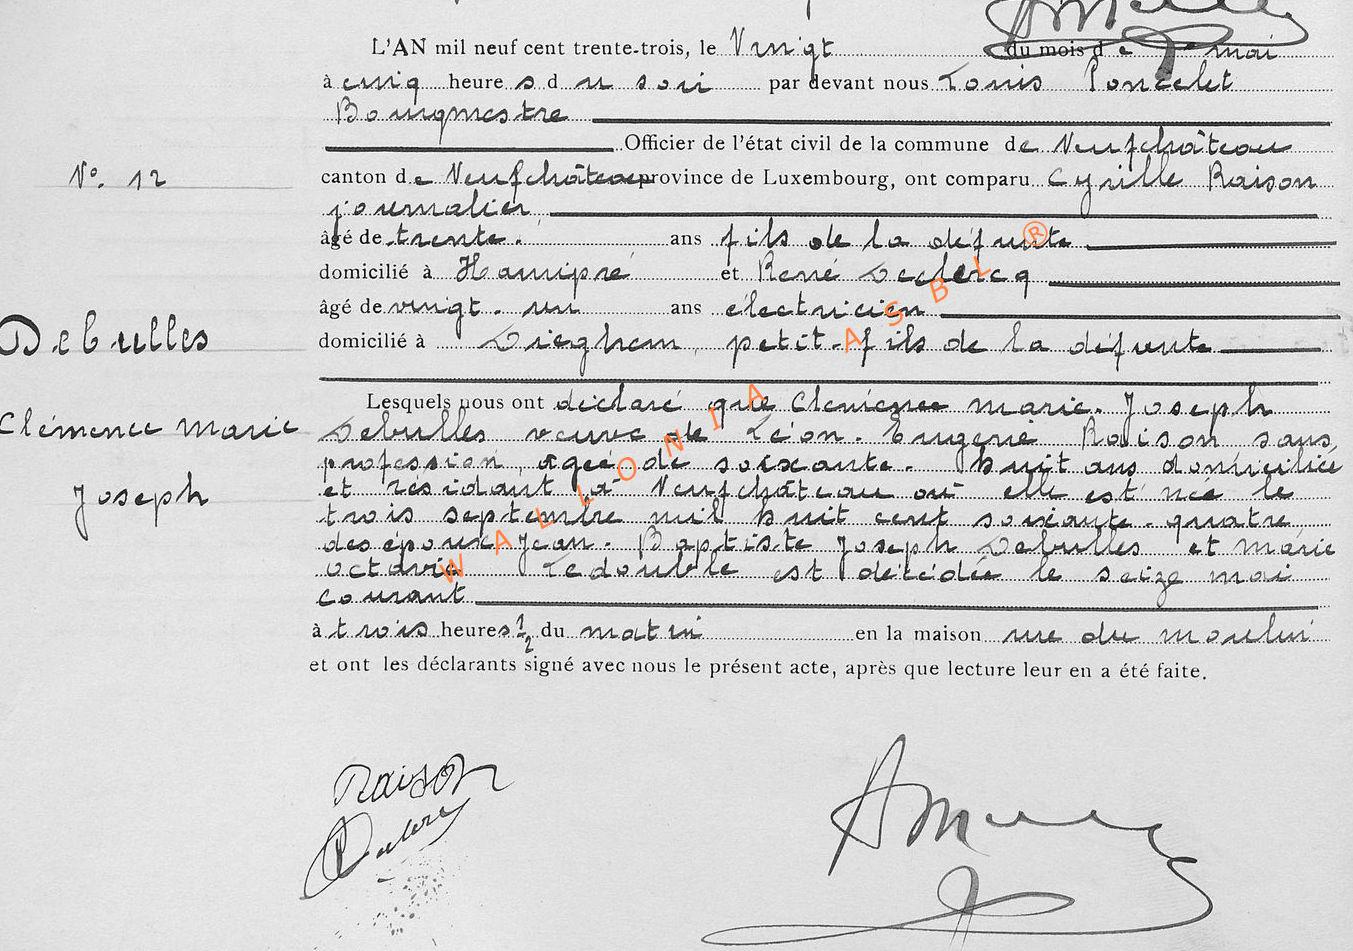 L'AN mil neuf cent trente-trois, le Vingt du mois de mai
à cinq heures du soir par devant nous Louis Poncelet
Bourgmestre
Officier de l'état civil de la commune de Neufchâteau
N°. 12
canton de Neufchâteau province de Luxembourg, ont comparu Cyrille Raison
journalier
âgé de trente. ans fils de la défunte
domicilié à Hamipré et René Declercq
âgé de vingt. un ans électricien
Debulles
domicilié à Dieghem, petit-fils de la défunte
Lesquels nous ont déclaré que Clémence marie. Joseph
Clémence marie
Debulles veuve de Léon. Eugène Raison sans
profession, agée de soixante. huit ans domiciliée
Joseph
et résidant à Neufchâteau où elle est née le
trois septembre mil huit cent soixante. quatre
des époux Jean. Baptiste Joseph Debulles et marie
octavie Ledouble est décédée le seize mai
courant
à trois heures 1/2 du matin en la maison rue du moulin
et ont les déclarants signé avec nous le présent acte, après que lecture leur en a été faite.
WALLONIA ASBL ®
Raison